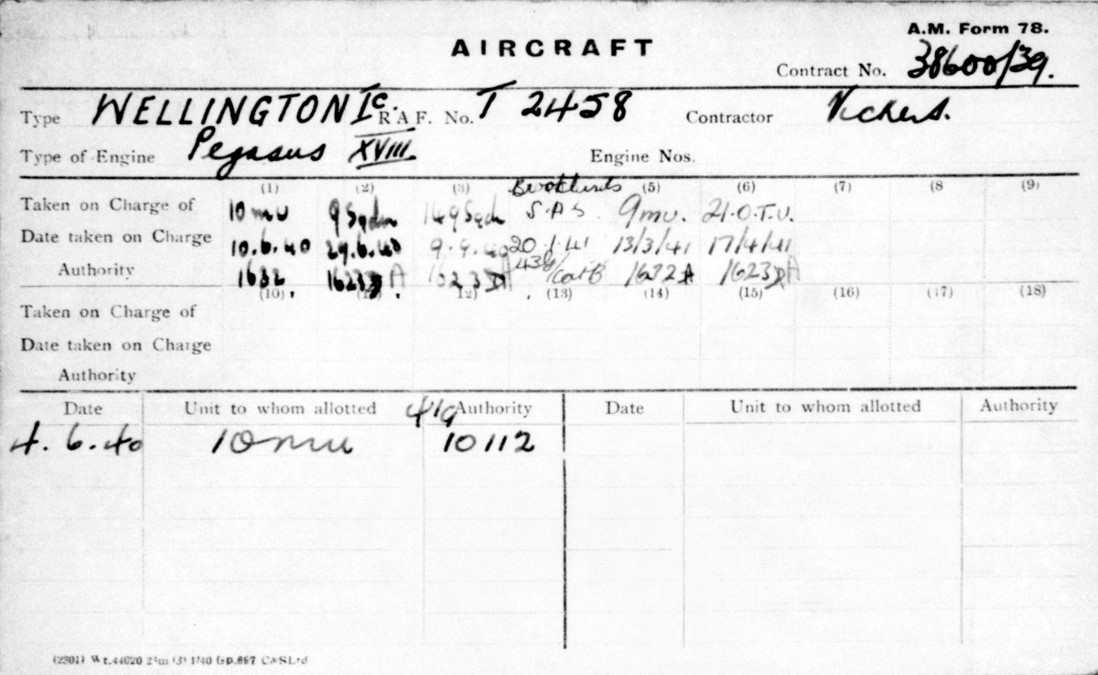 A.M. Form 78.
AIRCRAFT
Contract No. 38600/39.
Type WELLINGTON Ic. R.A F. No. T 2458 Contractor Vickers.
Type of Engine Pegasus XVIII Engine Nos.
(1) (2) (3) Brooklands (5) (6) (7) (8 (9)
Taken on Charge of 10 mu 9 Sqdn 149 Sqdn S.A.S. 9 mu. 21.O.T.U.
Date taken on Charge 10.6.40 29.6.40 9.9.40 20.1.41 13/3/41 17/4/41
Authority 1632 1623 A 1623 A 43g/Cat B 1622 A 1623 A
(10) 12) (13) (14) (15) (16) (17) (18)
Taken on Charge of
Date taken on Charge
Authority
Date Unit to whom allotted 41g Authority Date Unit to whom allotted Authority
4.6.40 10 mu 10112
(2301) Wt.44620 1/40 Gp.697 C&S Ltd